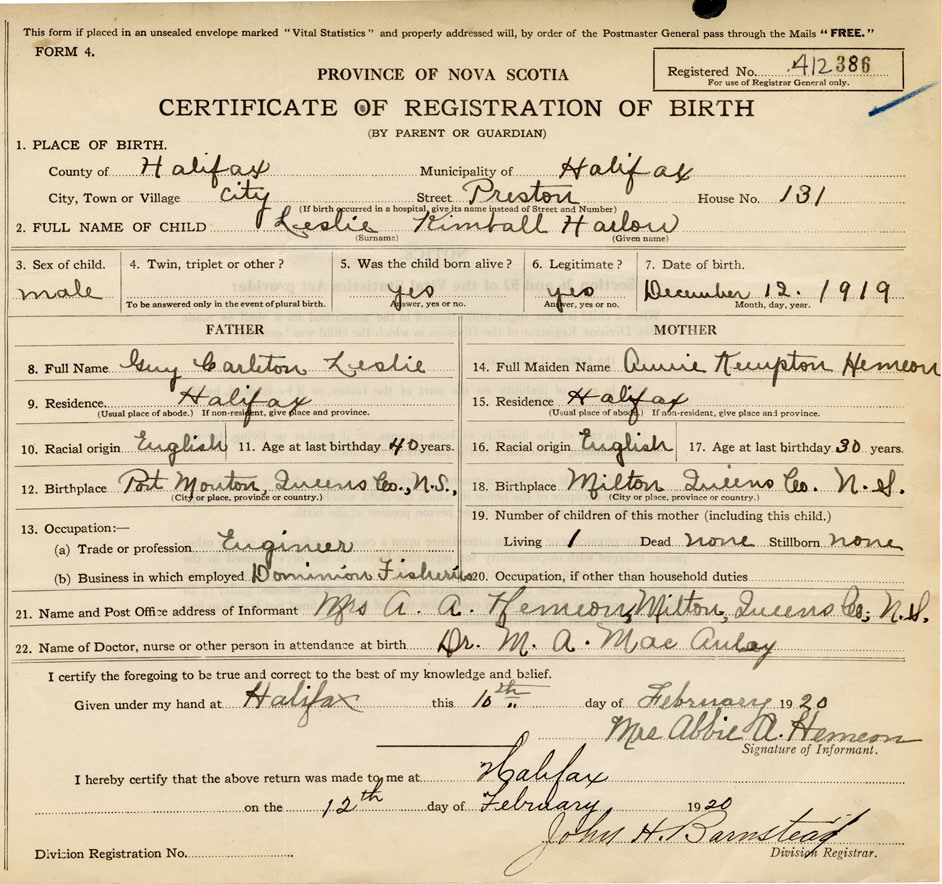 This form if placed in an unsealed envelope marked "Vital Statistics" and properly addressed will, by order of the Postmaster General pass through the Mails "FREE."
FORM 4.
Registered No. 412386
For use of Registrar General only.
PROVINCE OF NOVA SCOTIA
CERTIFICATE OF REGISTRATION OF BIRTH
(BY PARENT OR GUARDIAN)
1. PLACE OF BIRTH.
County of Halifax Municipality of Halifax
City, Town or Village City Street Preston House No. 131
(If birth occurred in a hospital, give its name instead of Street and Number)
2. FULL NAME OF CHILD Leslie Kimball Harlow
(Surname) (Given name)
3. Sex of child. 4. Twin, triplet or other? 5. Was the child born alive? 6. Legitimate? 7. Date of birth.
male yes yes December 12. 1919
To be answered only in the event of plural birth. Answer, yes or no. Answer, yes or no. Month, day, year.
FATHER MOTHER
8. Full Name Guy Carleton Leslie 14. Full Maiden Name Annie Kempton Hemeon
9. Residence. Halifax 15. Residence Halifax
(Usual place of abode.) If non-resident, give place and province. (Usual place of abode) If non-resident, give place and province.
10. Racial origin English 11. Age at last birthday 40 years. 16. Racial origin English 17. Age at last birthday 30 years.
12. Birthplace Port Mouton, Queens Co., N.S., 18. Birthplace Milton Queens Co. N.S.
(City or place, province or country.) (City or place, province or country.)
13. Occupation:— 19. Number of children of this mother (including this child.)
(a) Trade or profession Engineer Living 1 Dead none Stillborn none
(b) Business in which employed Dominion Fisheries 20. Occupation, if other than household duties
21. Name and Post Office address of Informant Mrs A. A. Hemeon, Milton, Queens Co., N.S.
22. Name of Doctor, nurse or other person in attendance at birth Dr. M. A. MacAulay
I certify the foregoing to be true and correct to the best of my knowledge and belief.
Given under my hand at Halifax this 10th day of February 1920
Mrs Abbie A. Hemeon
Signature of Informant.
I hereby certify that the above return was made to me at Halifax
on the 12th day of February 1920
John H. Barnstead
Division Registrar.
Division Registration No.